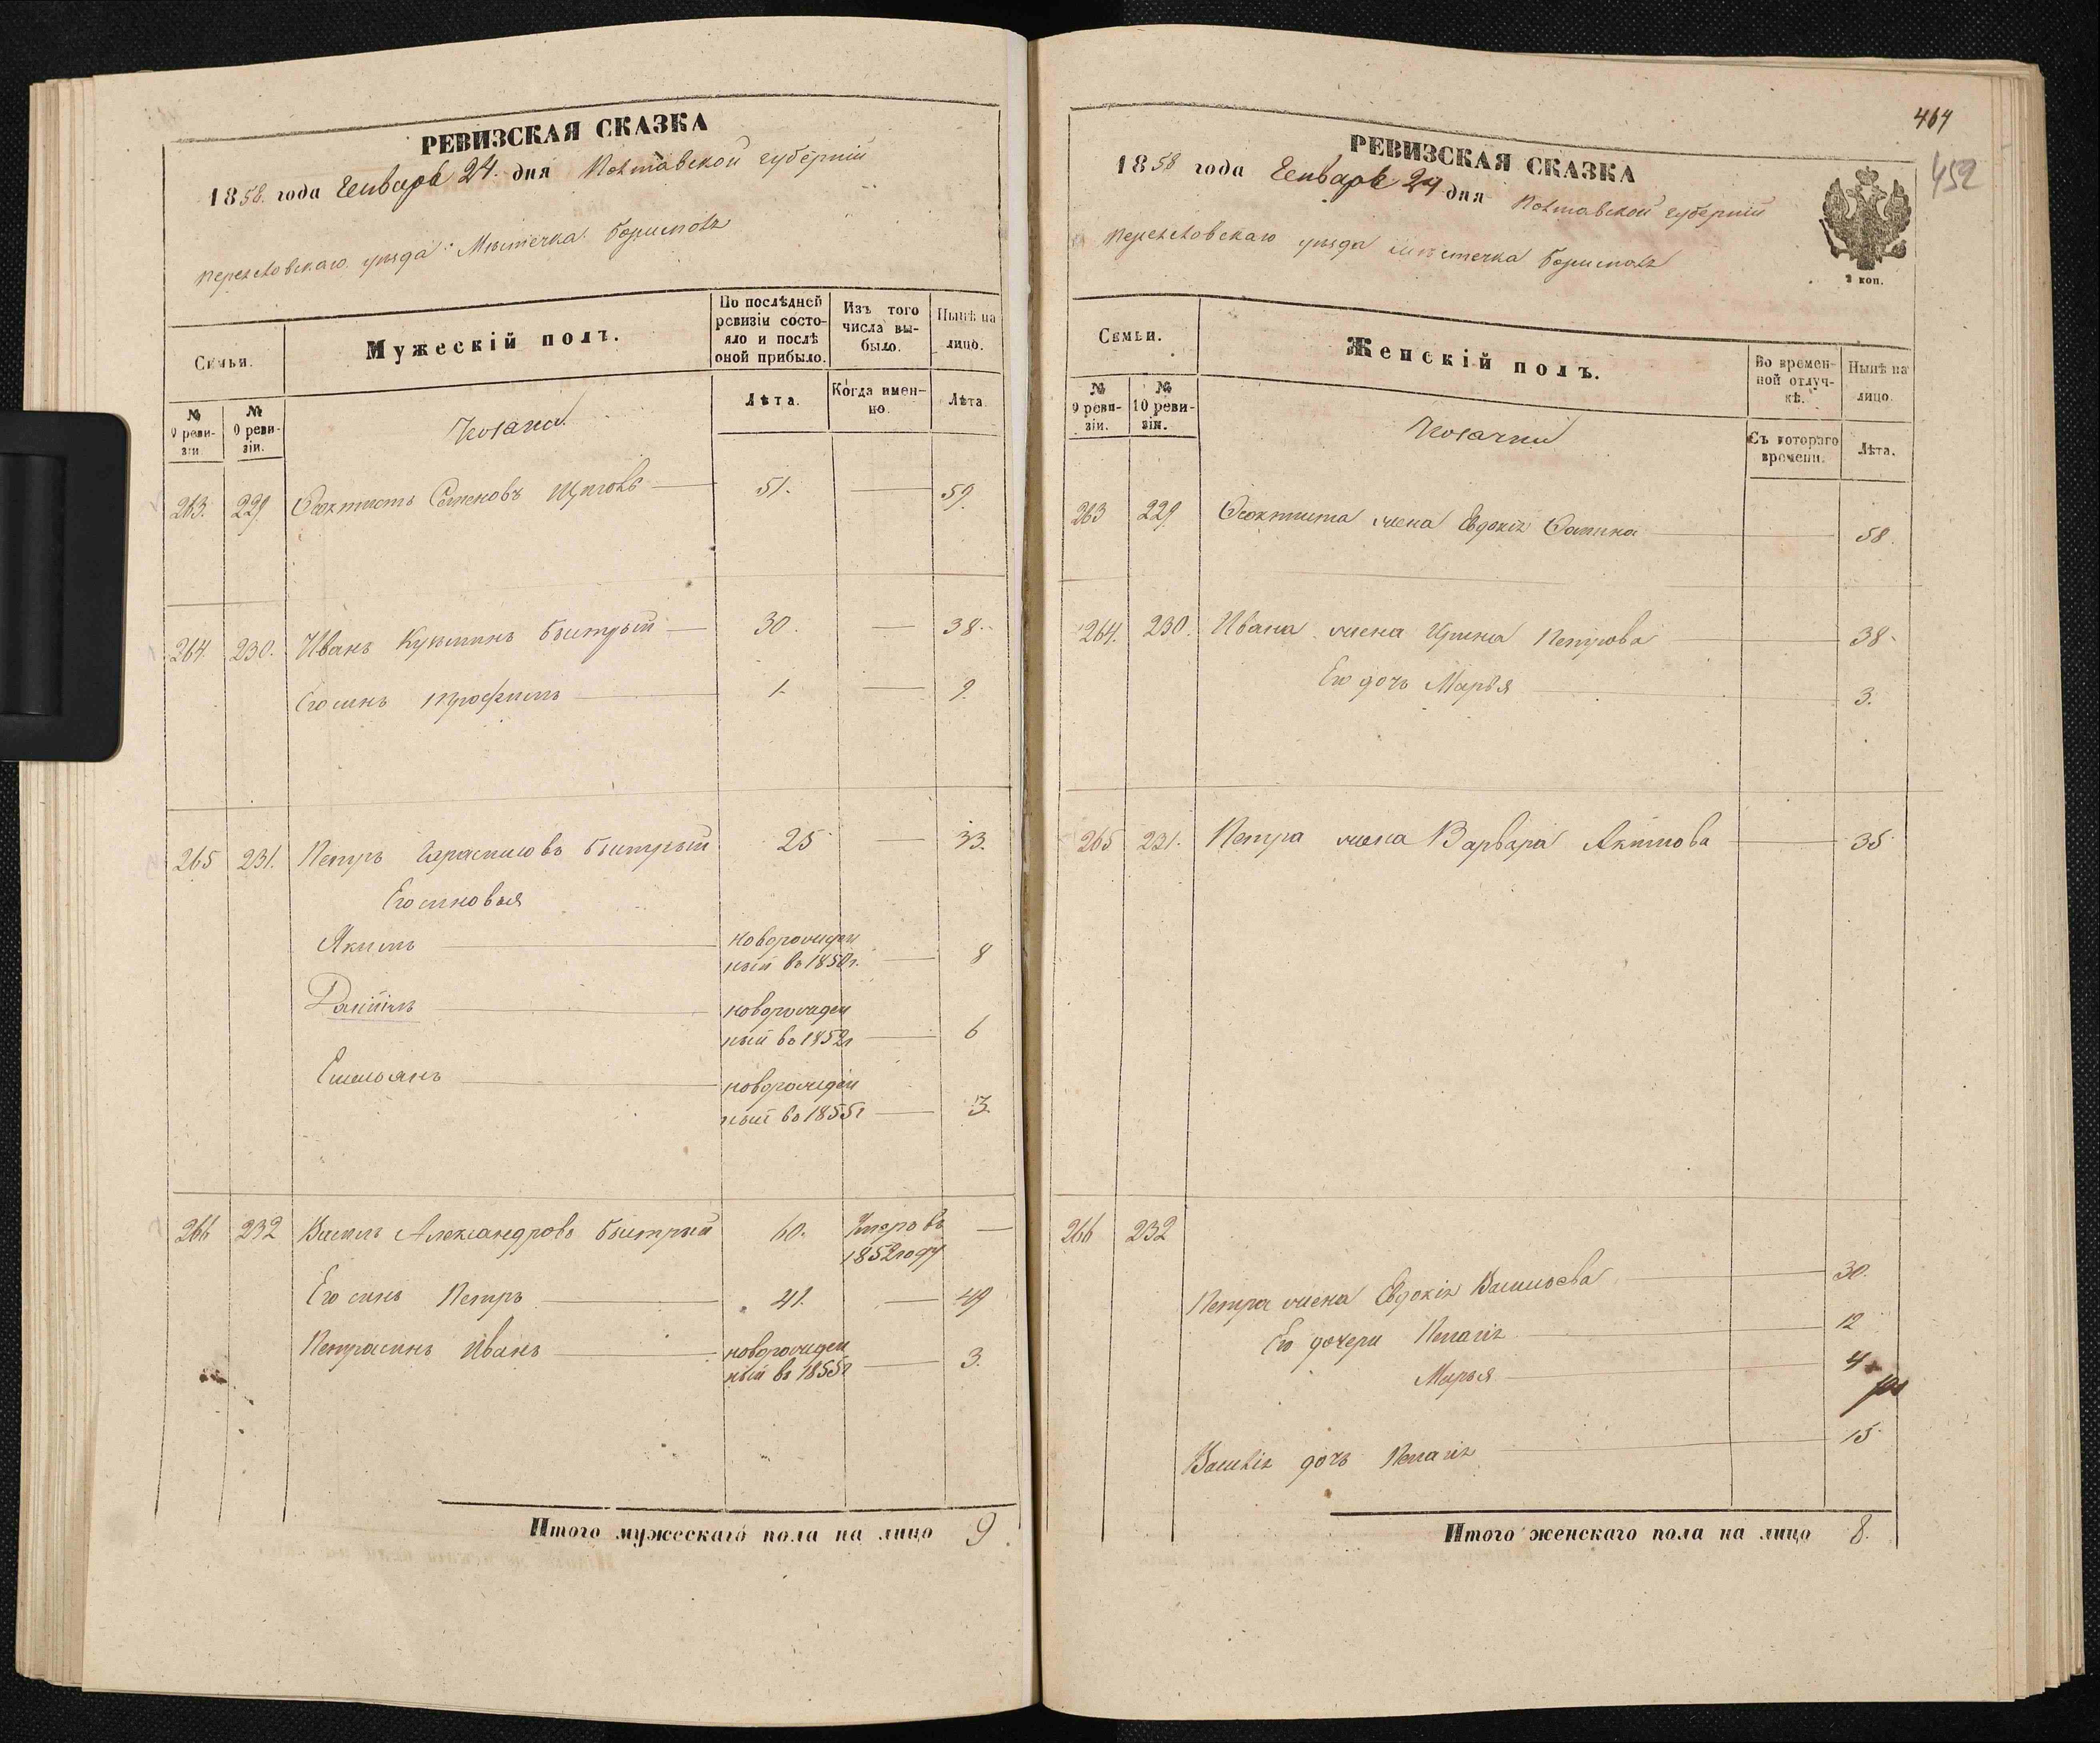 РЕВИЗСКАЯ СКАЗКА
1858. года Генваря 24. дня Полтавской губерніи
переяславскаго уезда Местечка Борисполя
Семьи.
Мужескій полъ.
По послѣдней ревизіи состо-
яло и послѣ
оной прибыло.
Изъ того
числа вы-
было.
Нынѣ на
лицо.
№
9 реви-
зіи
№
0 реви-
зіи.
Лѣта.
Когда имен-
но.
Лѣта.
Козаки
263. 229. Феоктистъ Семеновъ 51. 59.
264. 230. Иванъ Кузминъ Быстрый 30. 38.
Его синъ Трофимъ 1. 9.
265 231. Петръ Герасимовъ Быстрый 25 33.
Его синовья
Якимъ новорожден
ный въ 1850г. 8
Даніилъ новорожден
ный въ 1852г 6
Емельянъ новорожден
ный въ 1855г 3.
266 232 Василь Александровъ Быстрый 60. Умеръ въ
1852 году
Его синъ Петръ 41. 49
Петра синъ Иванъ новорожден
ный въ 1855г 3.
Итого мужескаго пола на лицо 9.
464
452
РЕВИЗСКАЯ СКАЗКА
1858 года Генваря 24 дня Полтавской губерніи
переяславскаго уезда местечка Борисполя
2 коп.
Семьи.
Женскій полъ.
Во времен-
ной отлуч-
кѣ.
Нынѣ на
лицо.
№
9 реви-
зіи.
№
10 реви-
зіи.
Съ котораго
времени.
Лѣта.
Козачки
263 229. Феоктиста жена Евдокія Фомина 58.
264. 230. Ивана жена Ирина Петрова 38.
Его дочъ Марья 3.
265 231. Петра жена Варвара Акимова 35
266 232
Петра жена Евдокія Васильева 30.
Его дочери Пелагія 12
Марья 4
Василія дочъ Пелагія 15
Итого женскаго пола на лицо 8.